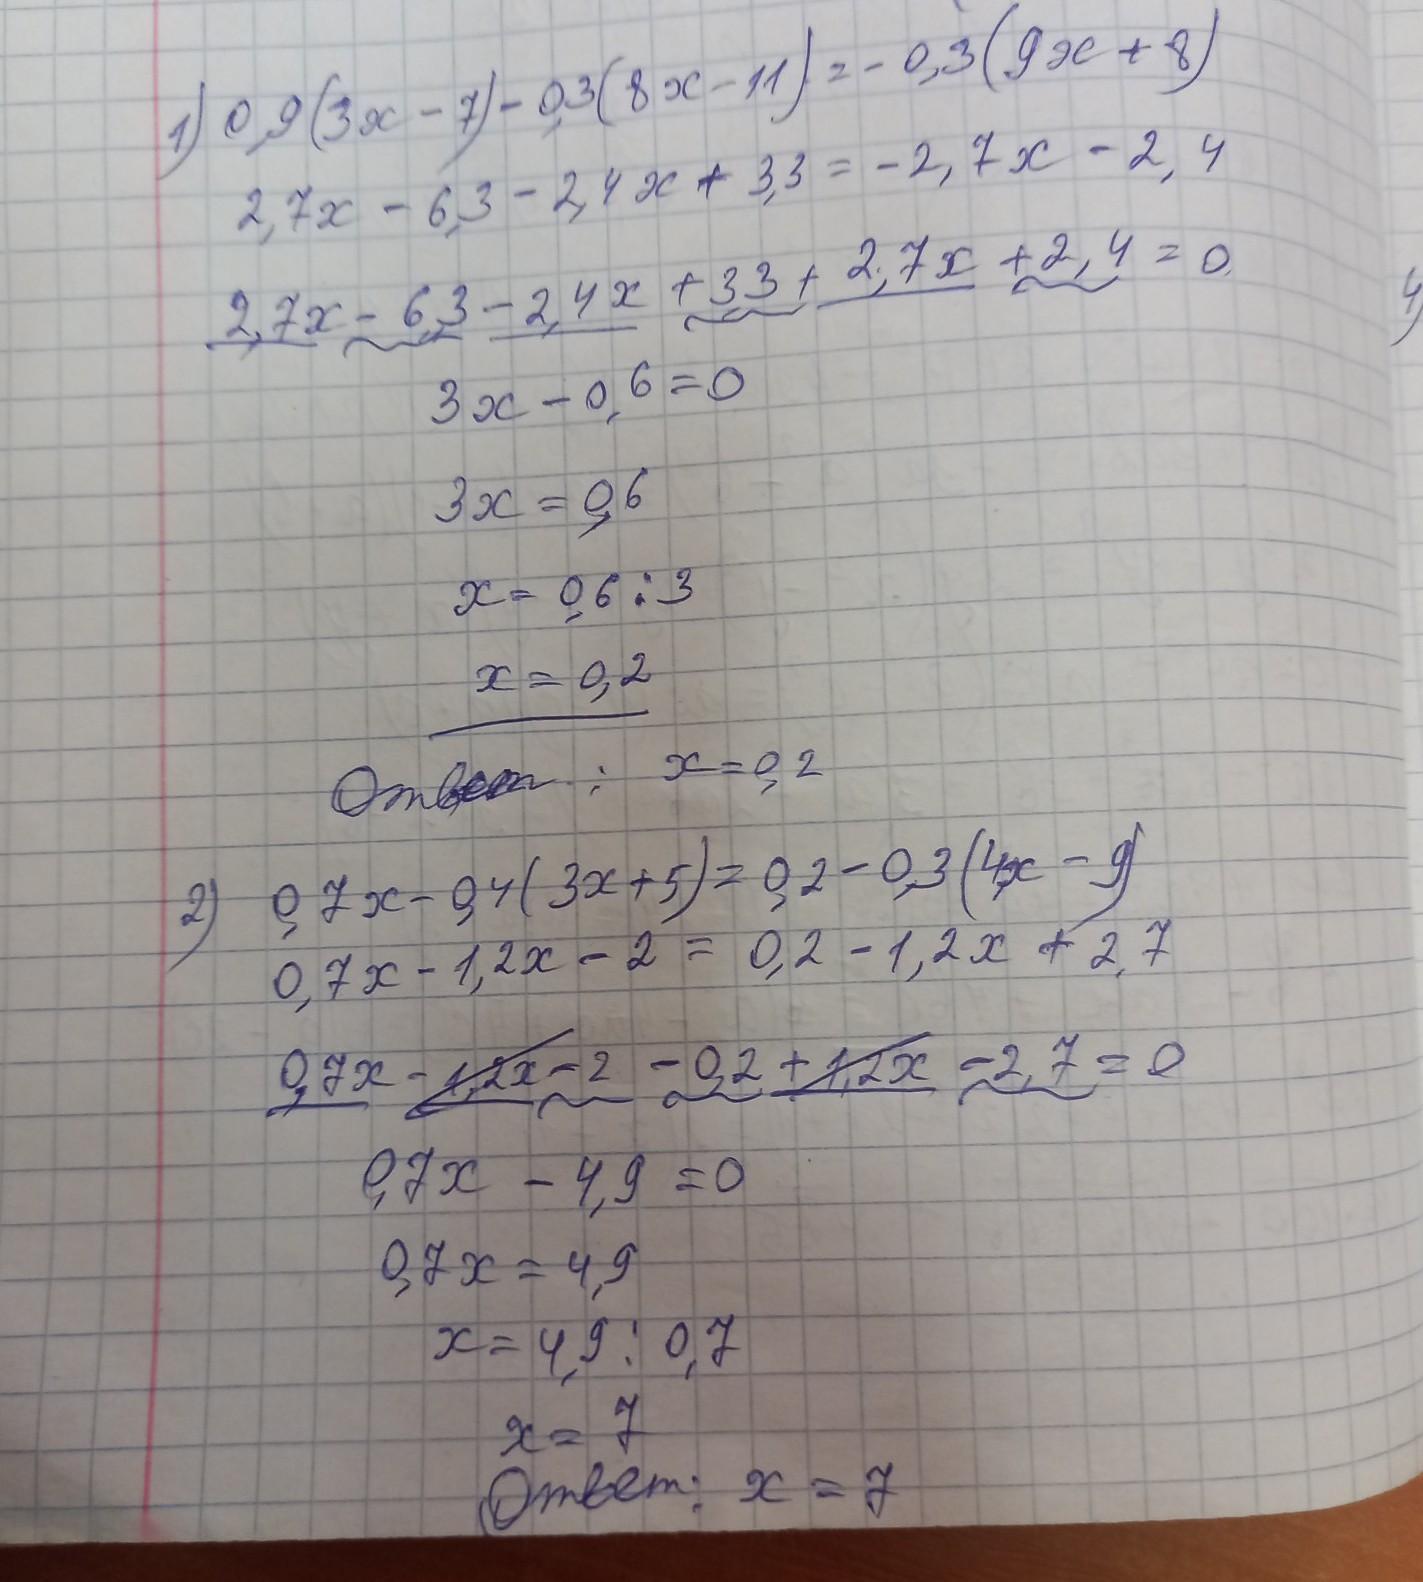 1) 0,9(3x-7)-0,3(8x-11)=-0,3(9x+8)
2,7x-6,3-2,4x+3,3=-2,7x-2,4
2,7x-6,3-2,4x+33+2,7x+2,4=0
3x-0,6=0
3x=0,6
x=0,6:3
x=0,2
Ответ: x=0,2
2) 0,7x-0,4(3x+5)=0,2-0,3(4x-9)
0,7x-1,2x-2=0,2-1,2x+2,7
0,7x-1,2x-2-0,2+1,2x-2,7=0
0,7x-4,9=0
0,7x=4,9
x=4,9:0,7
x=7
Ответ: x=7
4)